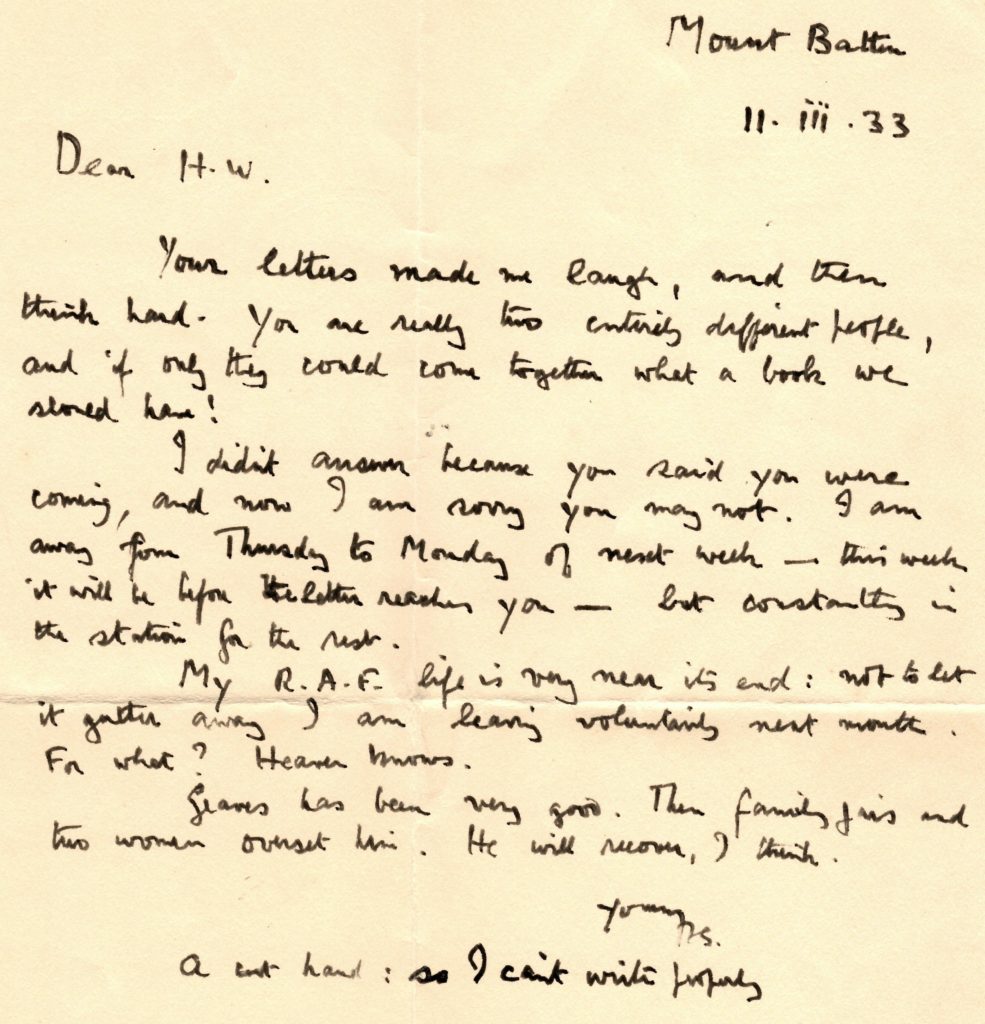 Mount Batten
11. iii. 33
Dear H.W.
Your letters made me laugh, and then
think hard. You are really two entirely different people,
and if only they could come together what a book we
should have!
I didn't answer because you said you were
coming, and now I am sorry you may not. I am
away from Thursday to Monday of next week — this week
it will be before the letter reaches you — but constantly in
the station for the rest.
My R.A.F. life is very near its end: not to let
it gutter away I am leaving voluntarily next month.
For what? Heaven knows.
Graves has been very good. Then family and
two women overset him. He will recover, I think.
Yours
T.S.
A cut hand: so I can't write properly